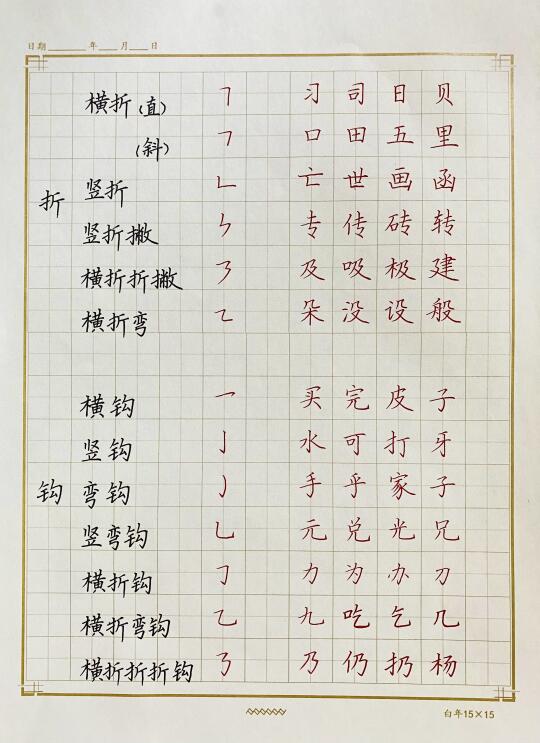 日期 年 月 日
横折(直) ㇕ 习 司 日 贝
(斜) ㇕ 口 田 五 里
折 竖折 ㇗ 亡 世 画 函
竖折撇 ㇞ 专 传 砖 转
横折折撇 ㇋ 及 吸 极 建
横折弯 ㇍ 朵 没 设 般
横钩 ㇖ 买 完 皮 子
竖钩 亅 水 可 打 牙
钩 弯钩 ㇁ 手 乎 家 子
竖弯钩 乚 元 兑 光 兄
横折钩 ㇆ 力 为 办 刀
横折弯钩 ㇈ 九 吃 乞 几
横折折折钩 ㇡ 乃 仍 扔 杨
白年15×15